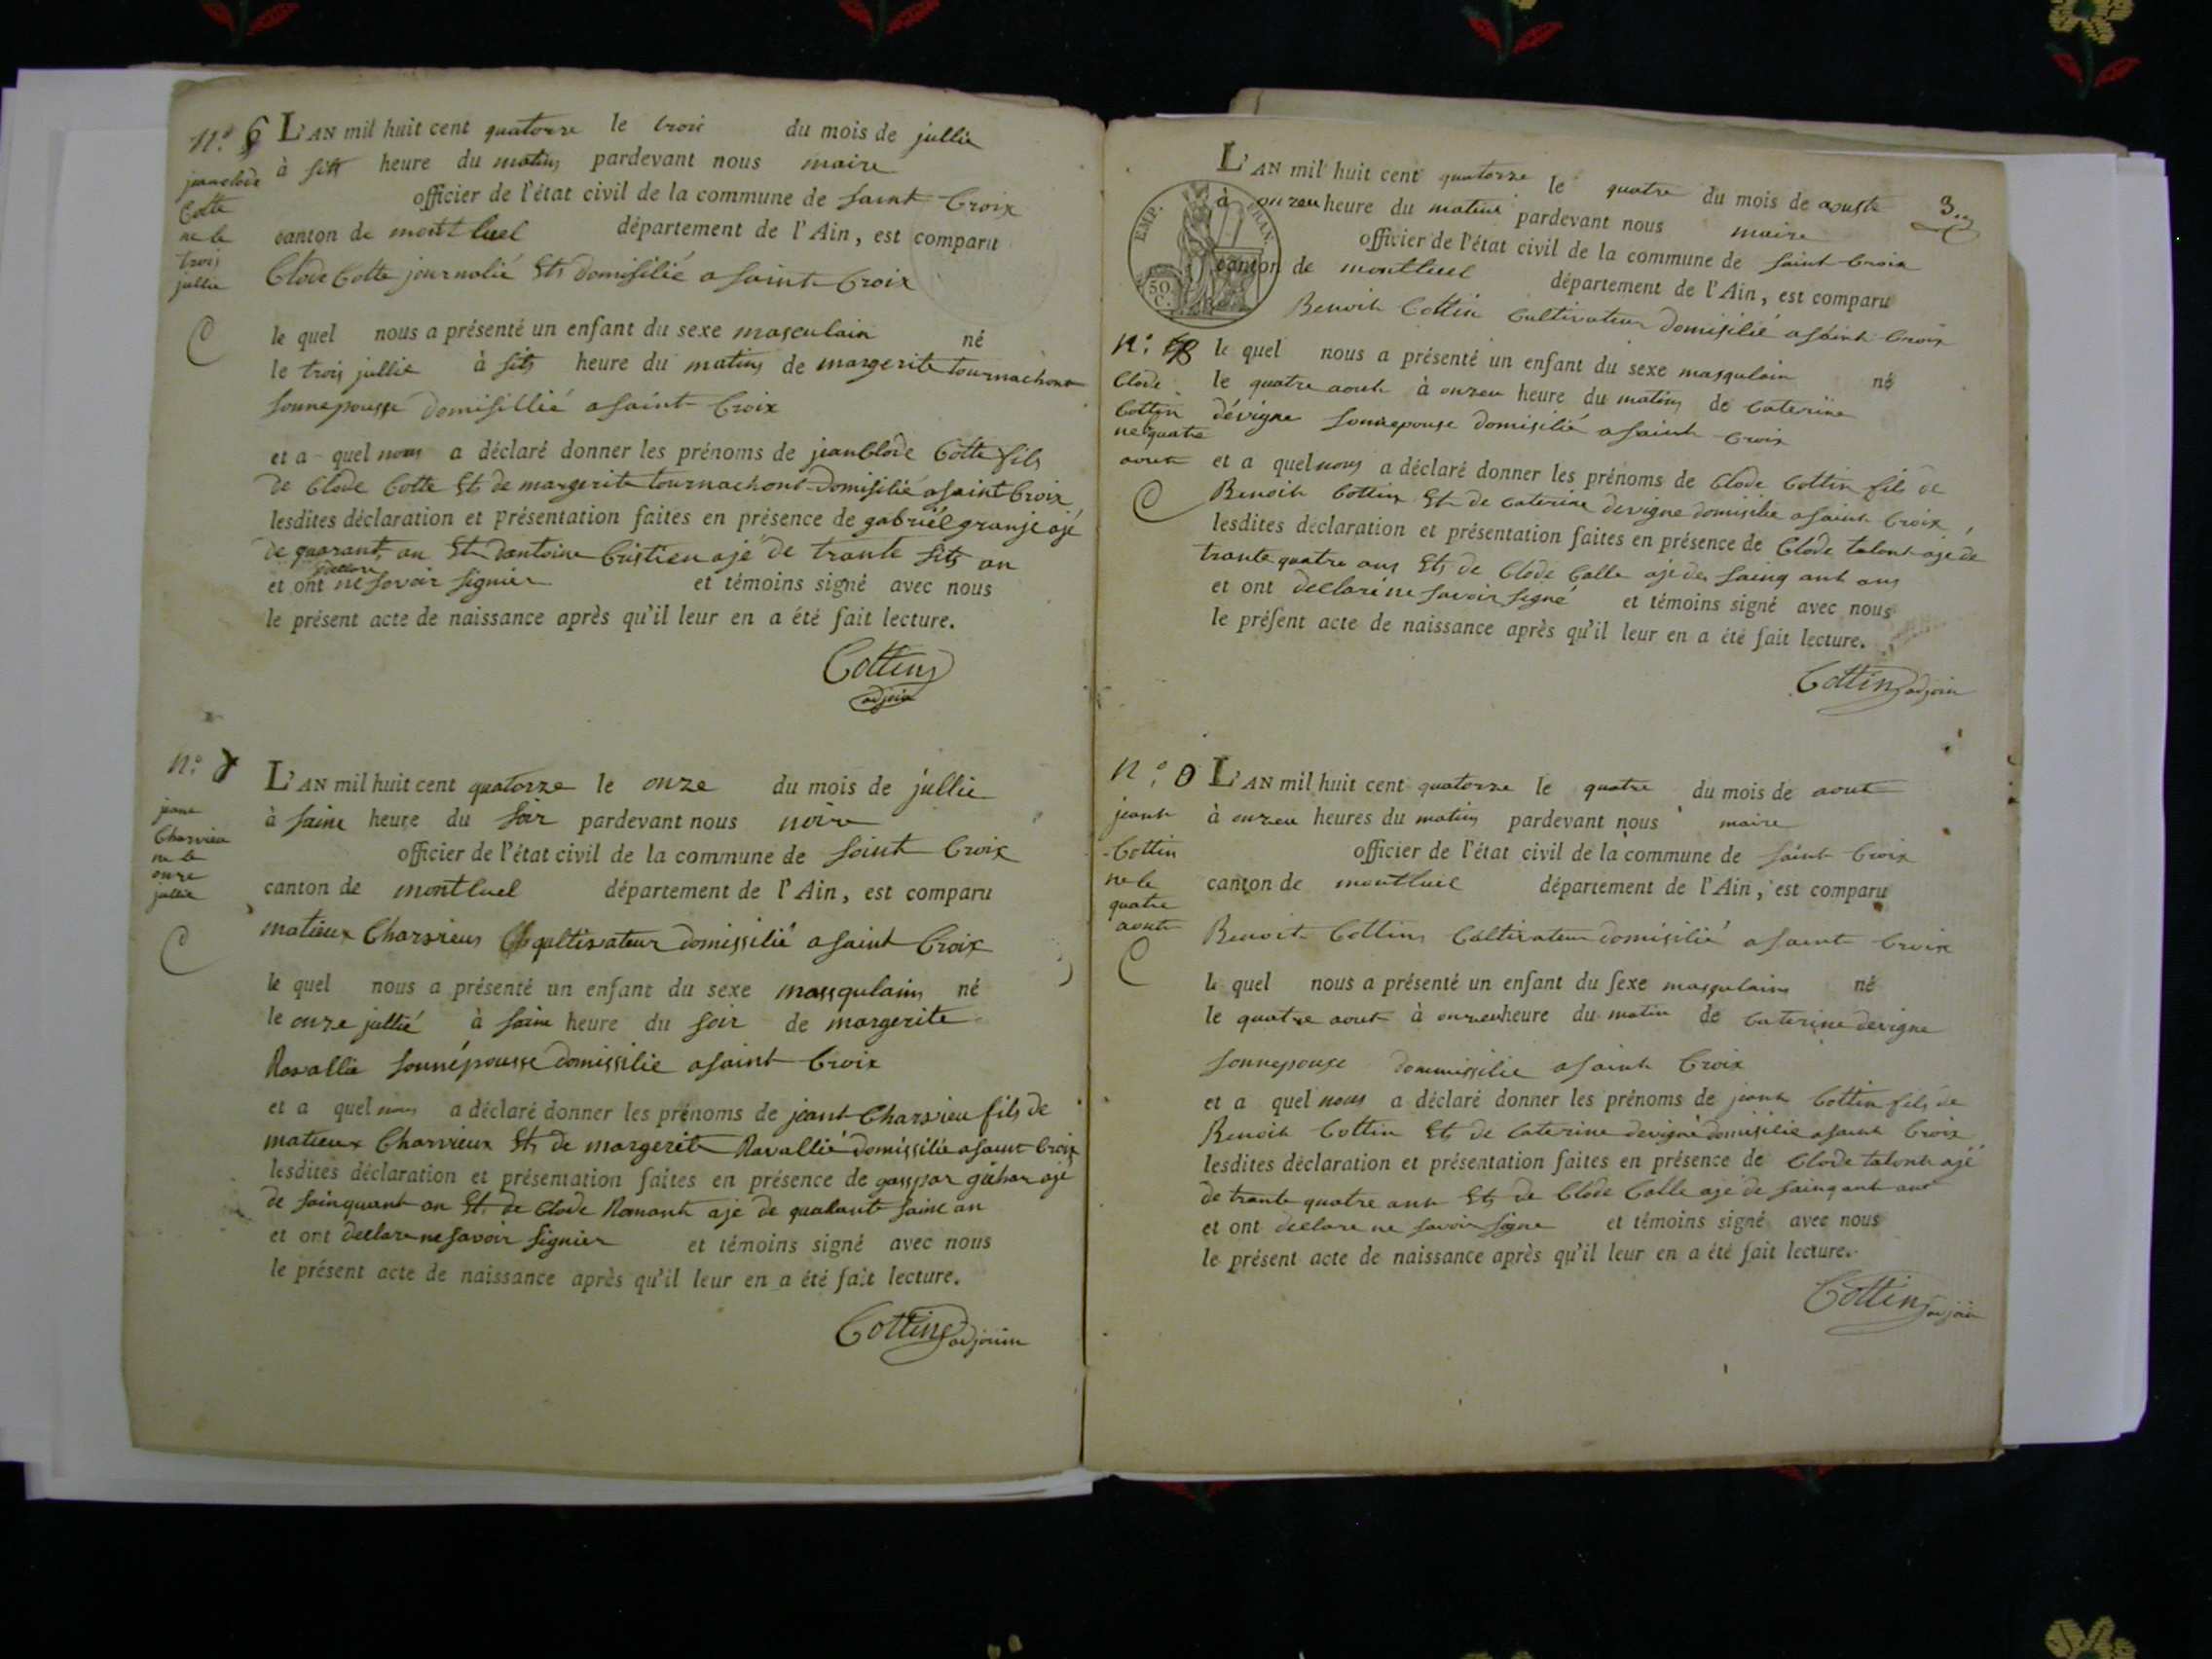 N.º 6
jeanclode
Cotte
ne le
trois
jullie
L'AN mil huit cent quatorze le trois du mois de jullie
à sitt heure du matins pardevant nous maire
officier de l'état civil de la commune de saint Croix
canton de montluel département de l'Ain, est comparu
Clode Cotte journalié Ets domisilié a saint Croix
le quel nous a présenté un enfant du sexe masculain né
le trois jullie à sits heure du matins de margerite tournachont
sonnepousse domisillié a saint Croix
et a quel nous a déclaré donner les prénoms de jeanClode Cotte fils
de Clode Cotte Ets de margerite tournachont domisilié a saint Croix
lesdites déclaration et présentation faites en présence de gabriél granje ajé
de quarant an Ets dantoine Cristien ajé de trante sits an
et ont declare ne savoir signier et témoins signé avec nous
le présent acte de naissance après qu'il leur en a été fait lecture.
Cottins
adjoin
N.º 7
jeane
Charvieu
ne le
onze
jullie
L'AN mil huit cent quatorze le onze du mois de jullie
à saine heure du soir pardevant nous
officier de l'état civil de la commune de saint Croix
canton de montluel département de l'Ain, est comparu
matieux Charvieux qultivateur domissilié a saint Croix
le quel nous a présenté un enfant du sexe massqulains né
le onze jullié à saine heure du soir de margerite
Ravallie sonnépousse domissilie a saint Croix
et a quel nous a déclaré donner les prénoms de jeant Charvieu fils de
matieux Charvieux Ets de margerite Ravallié domissilié a saint Croix
lesdites déclaration et présentation faites en présence de gasspar guhar aje
de sainquant an Ets de Clode Romant ajé de quakante saine an
et ont declare ne savoir signier et témoins signé avec nous
le présent acte de naissance après qu'il leur en a été fait lecture.
Cottins adjoin
3.e
EMP. FRAN.
50 C.
L'AN mil huit cent quatorze le quatre du mois de aouste
à onzeu heure du matins pardevant nous maire
officier de l'état civil de la commune de saint Croix
canton de montluel département de l'Ain, est comparu
Benoit Cottin Cultivateur domisilié a saint Croix
N.º 8
Clode
Cottin
ne quatre
aout
le quel nous a présenté un enfant du sexe masqulain né
le quatre aout à onzeu heure du matins de Caterine
dévigne sonnepouse domisilié a saint Croix
et a quel nous a déclaré donner les prénoms de Clode Cottin fils de
Benoit Cottins Et de Caterine devigne domisilie a saint Croix
lesdites déclaration et présentation faites en présence de Clode talont aje de
trante quatre ans Ets de Clode Calle aje de sainq ant ans
et ont declaré ne savoir signé et témoins signé avec nous
le présent acte de naissance après qu'il leur en a été fait lecture.
Cottins adjoin
N.º
jeant
Cottin
ne le
quatre
aout
L'AN mil huit cent quatorze le quatre du mois de aout
à onzeu heures du matins pardevant nous maire
officier de l'état civil de la commune de saint Croix
canton de montluel département de l'Ain, est comparu
Benoit Cottins Caltivateur domisilié a saint Croix
le quel nous a présenté un enfant du sexe masqulains né
le quatre aout à onzeu heure du matin de Caterine devigne
sonnepouse dommissilie a saint Croix
et a quel nous a déclaré donner les prénoms de jeant Cottin fils de
Benoit Cottin Ets de Caterine devigne domisilie a saint Croix
lesdites déclaration et présentation faites en présence de Clode talont ajé
de trante quatre ant Ets de Clode Calle aje de sainqant ant
et ont declare ne savoir signe et témoins signé avec nous
le présent acte de naissance après qu'il leur en a été fait lecture.
Cottins adjoin